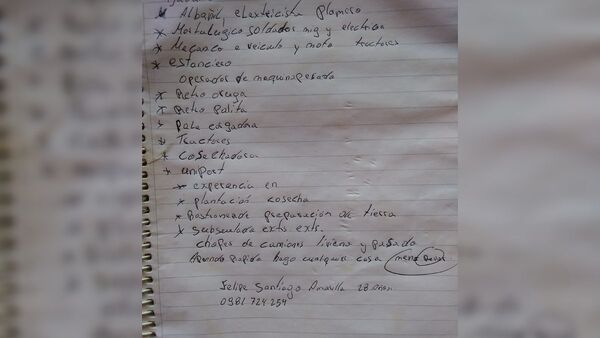 * Albañil, electricista plomero
* Metalurgico soldador mig y electrica
* Mecanico e veiculo y moto tractores
* estanciero
operador de maquina pesada
* Retro oruga
* Retro palita
* pala cargadora
* Tractores
* Cosechadora
* uniport
* experiencia en
* plantación cosecha
* Rastroneada preparación de tierra
* Subsuladora exts exts.
chofer de camiones liviano y pesado
Aprendo rapido hago cualquier cosa meno
Felipe Santiago 28 años
0981 724.254